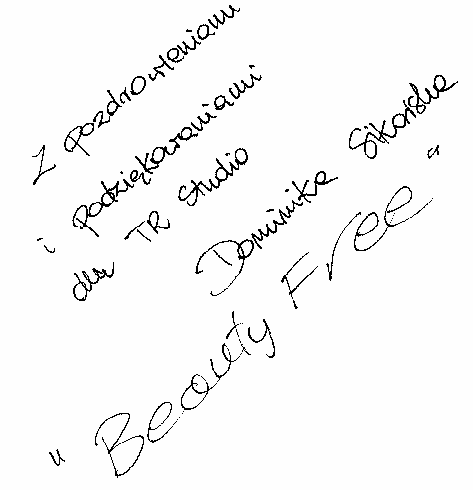 Z pozdrowieniami
i podziękowaniami
dla TR Studio
Dominika Sikorska
"Beauty Free"